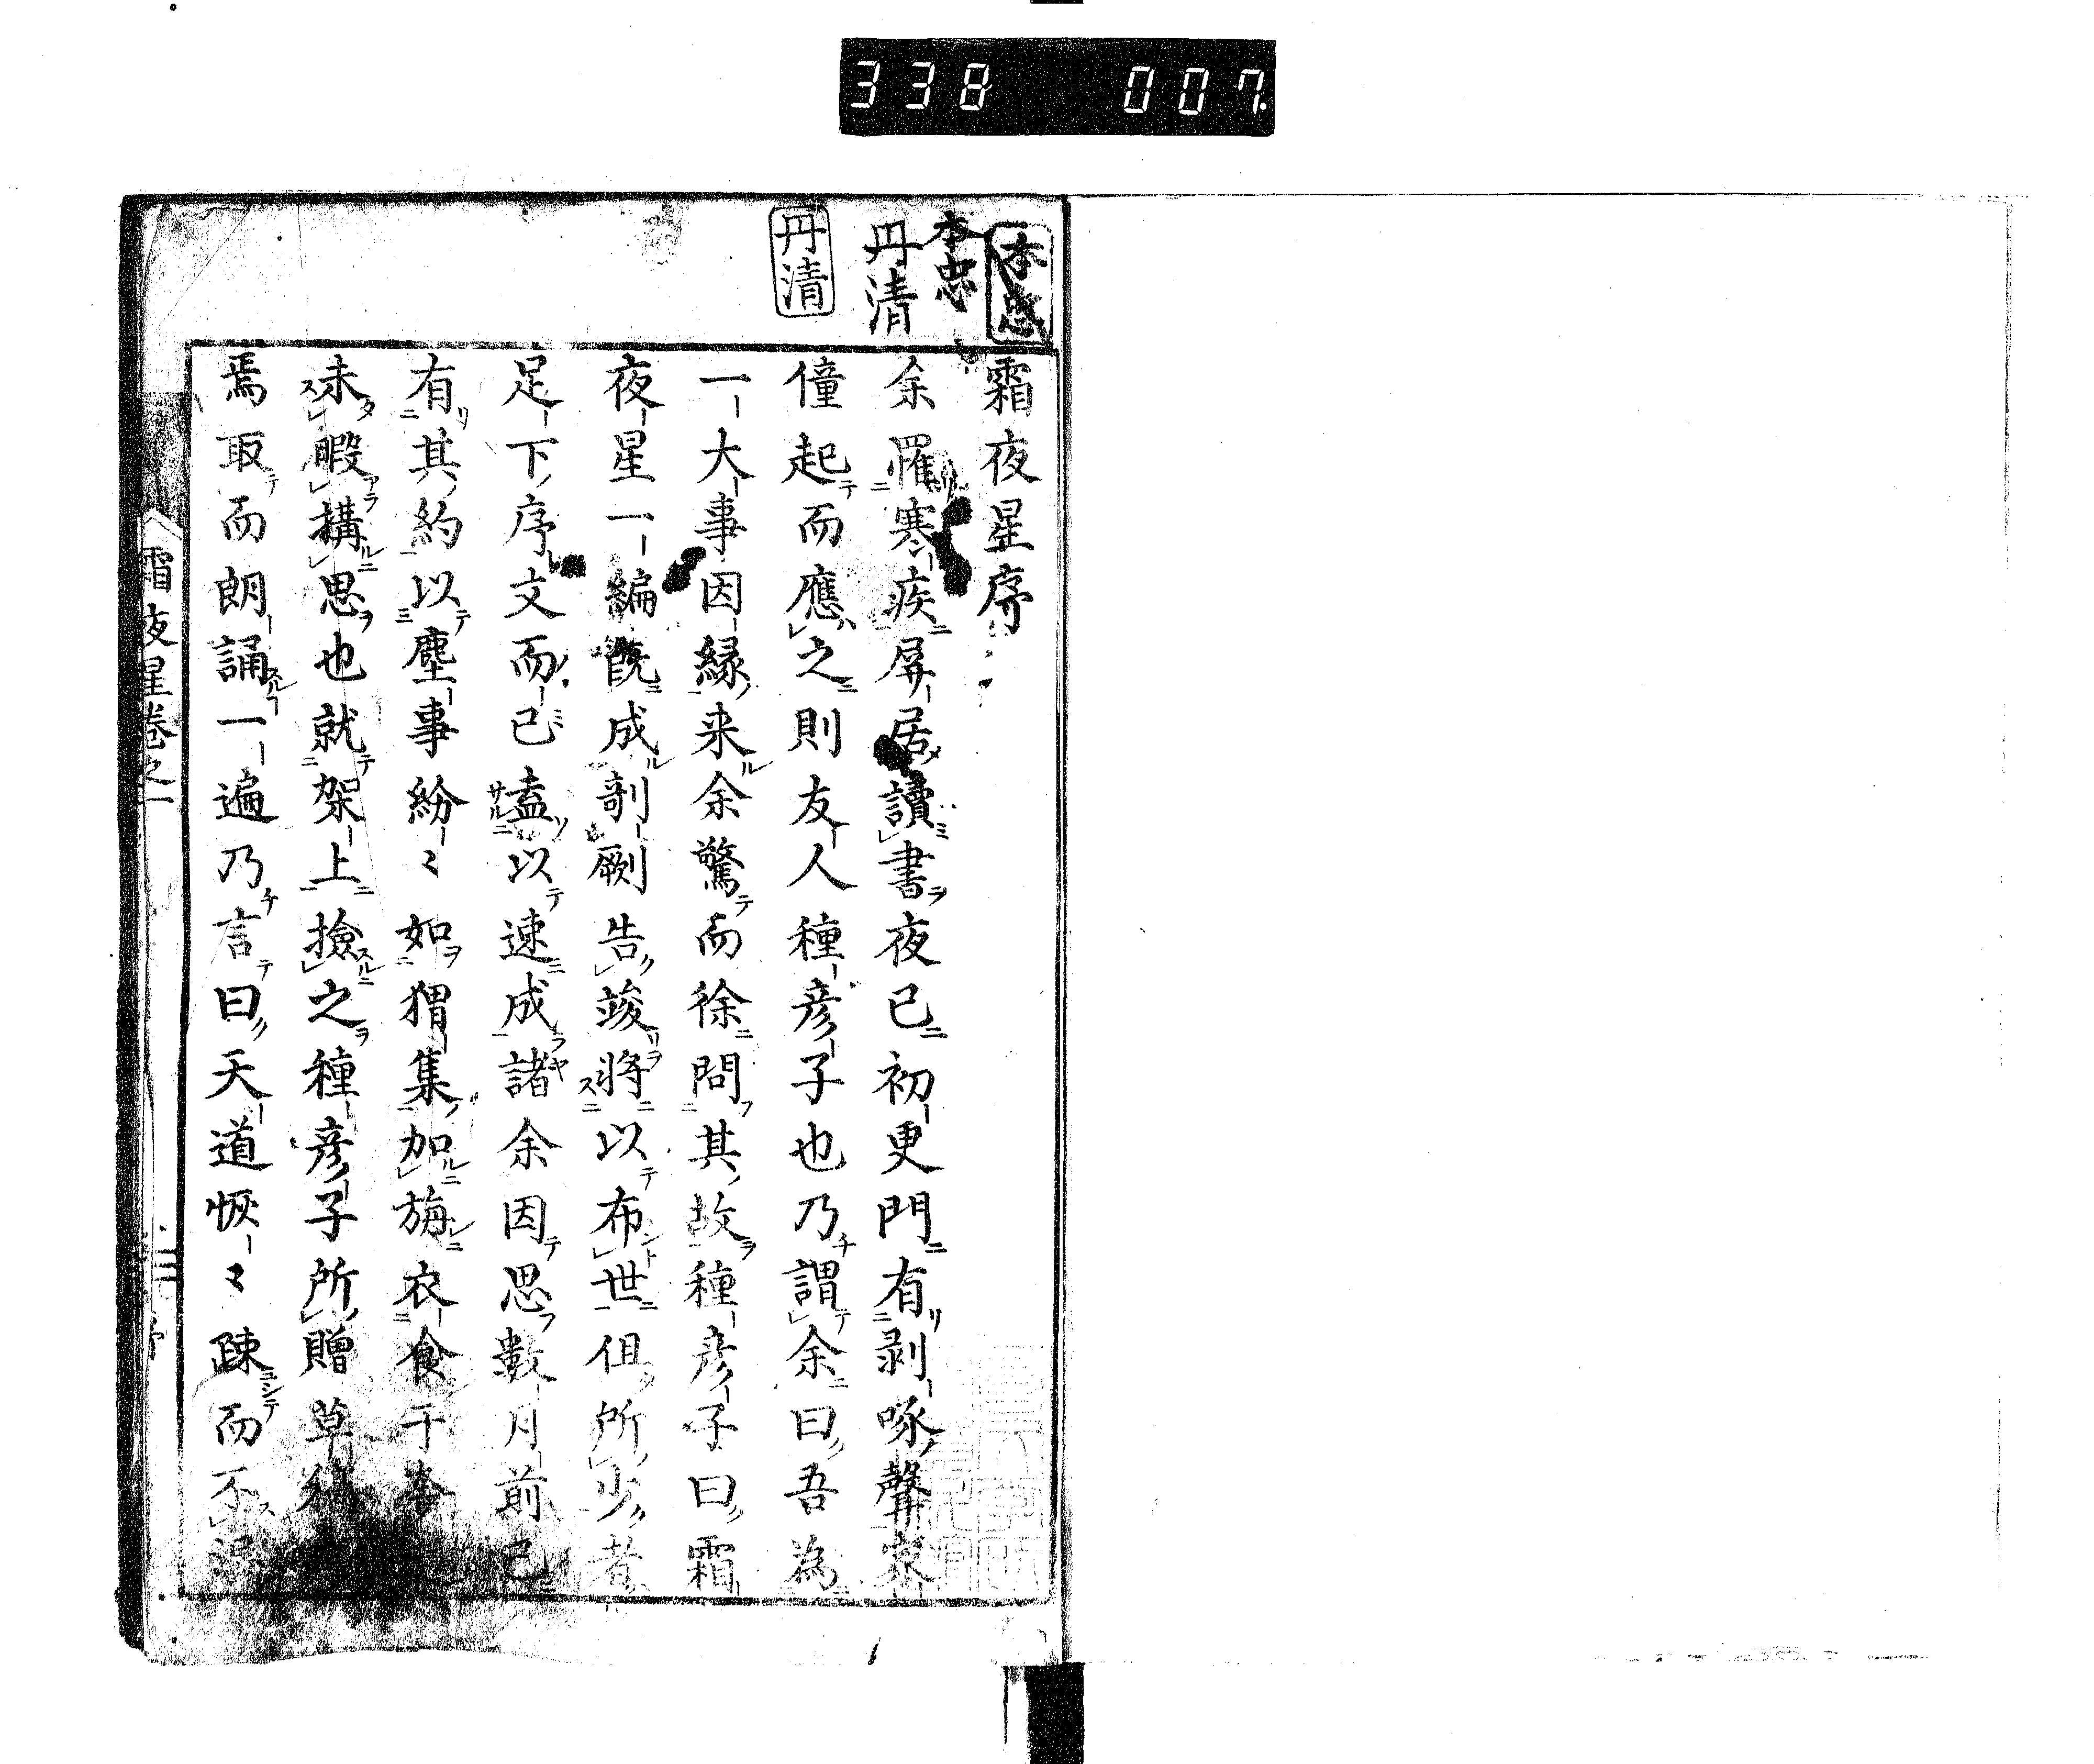 338 007.
本忠
本忠
丹清
丹清
霜夜星序
余罹寒疾屏居讀書夜已初更門有剥啄聲家
僮起而應之則友人種彦子也乃謂余曰吾為
一大事因縁来余驚而徐問其故種彦子曰霜
夜星一編既成剞劂告竣將以布世但所少者
足下序文而已盍以速成諸余因思數月前已
有其約以塵事紛〻如猬集加旃衣食于
未暇搆思也就架上撿之種彦子所贈草稿
焉取而朗誦一遍乃言曰天道恢〻踈而不漏
霜夜星卷之一